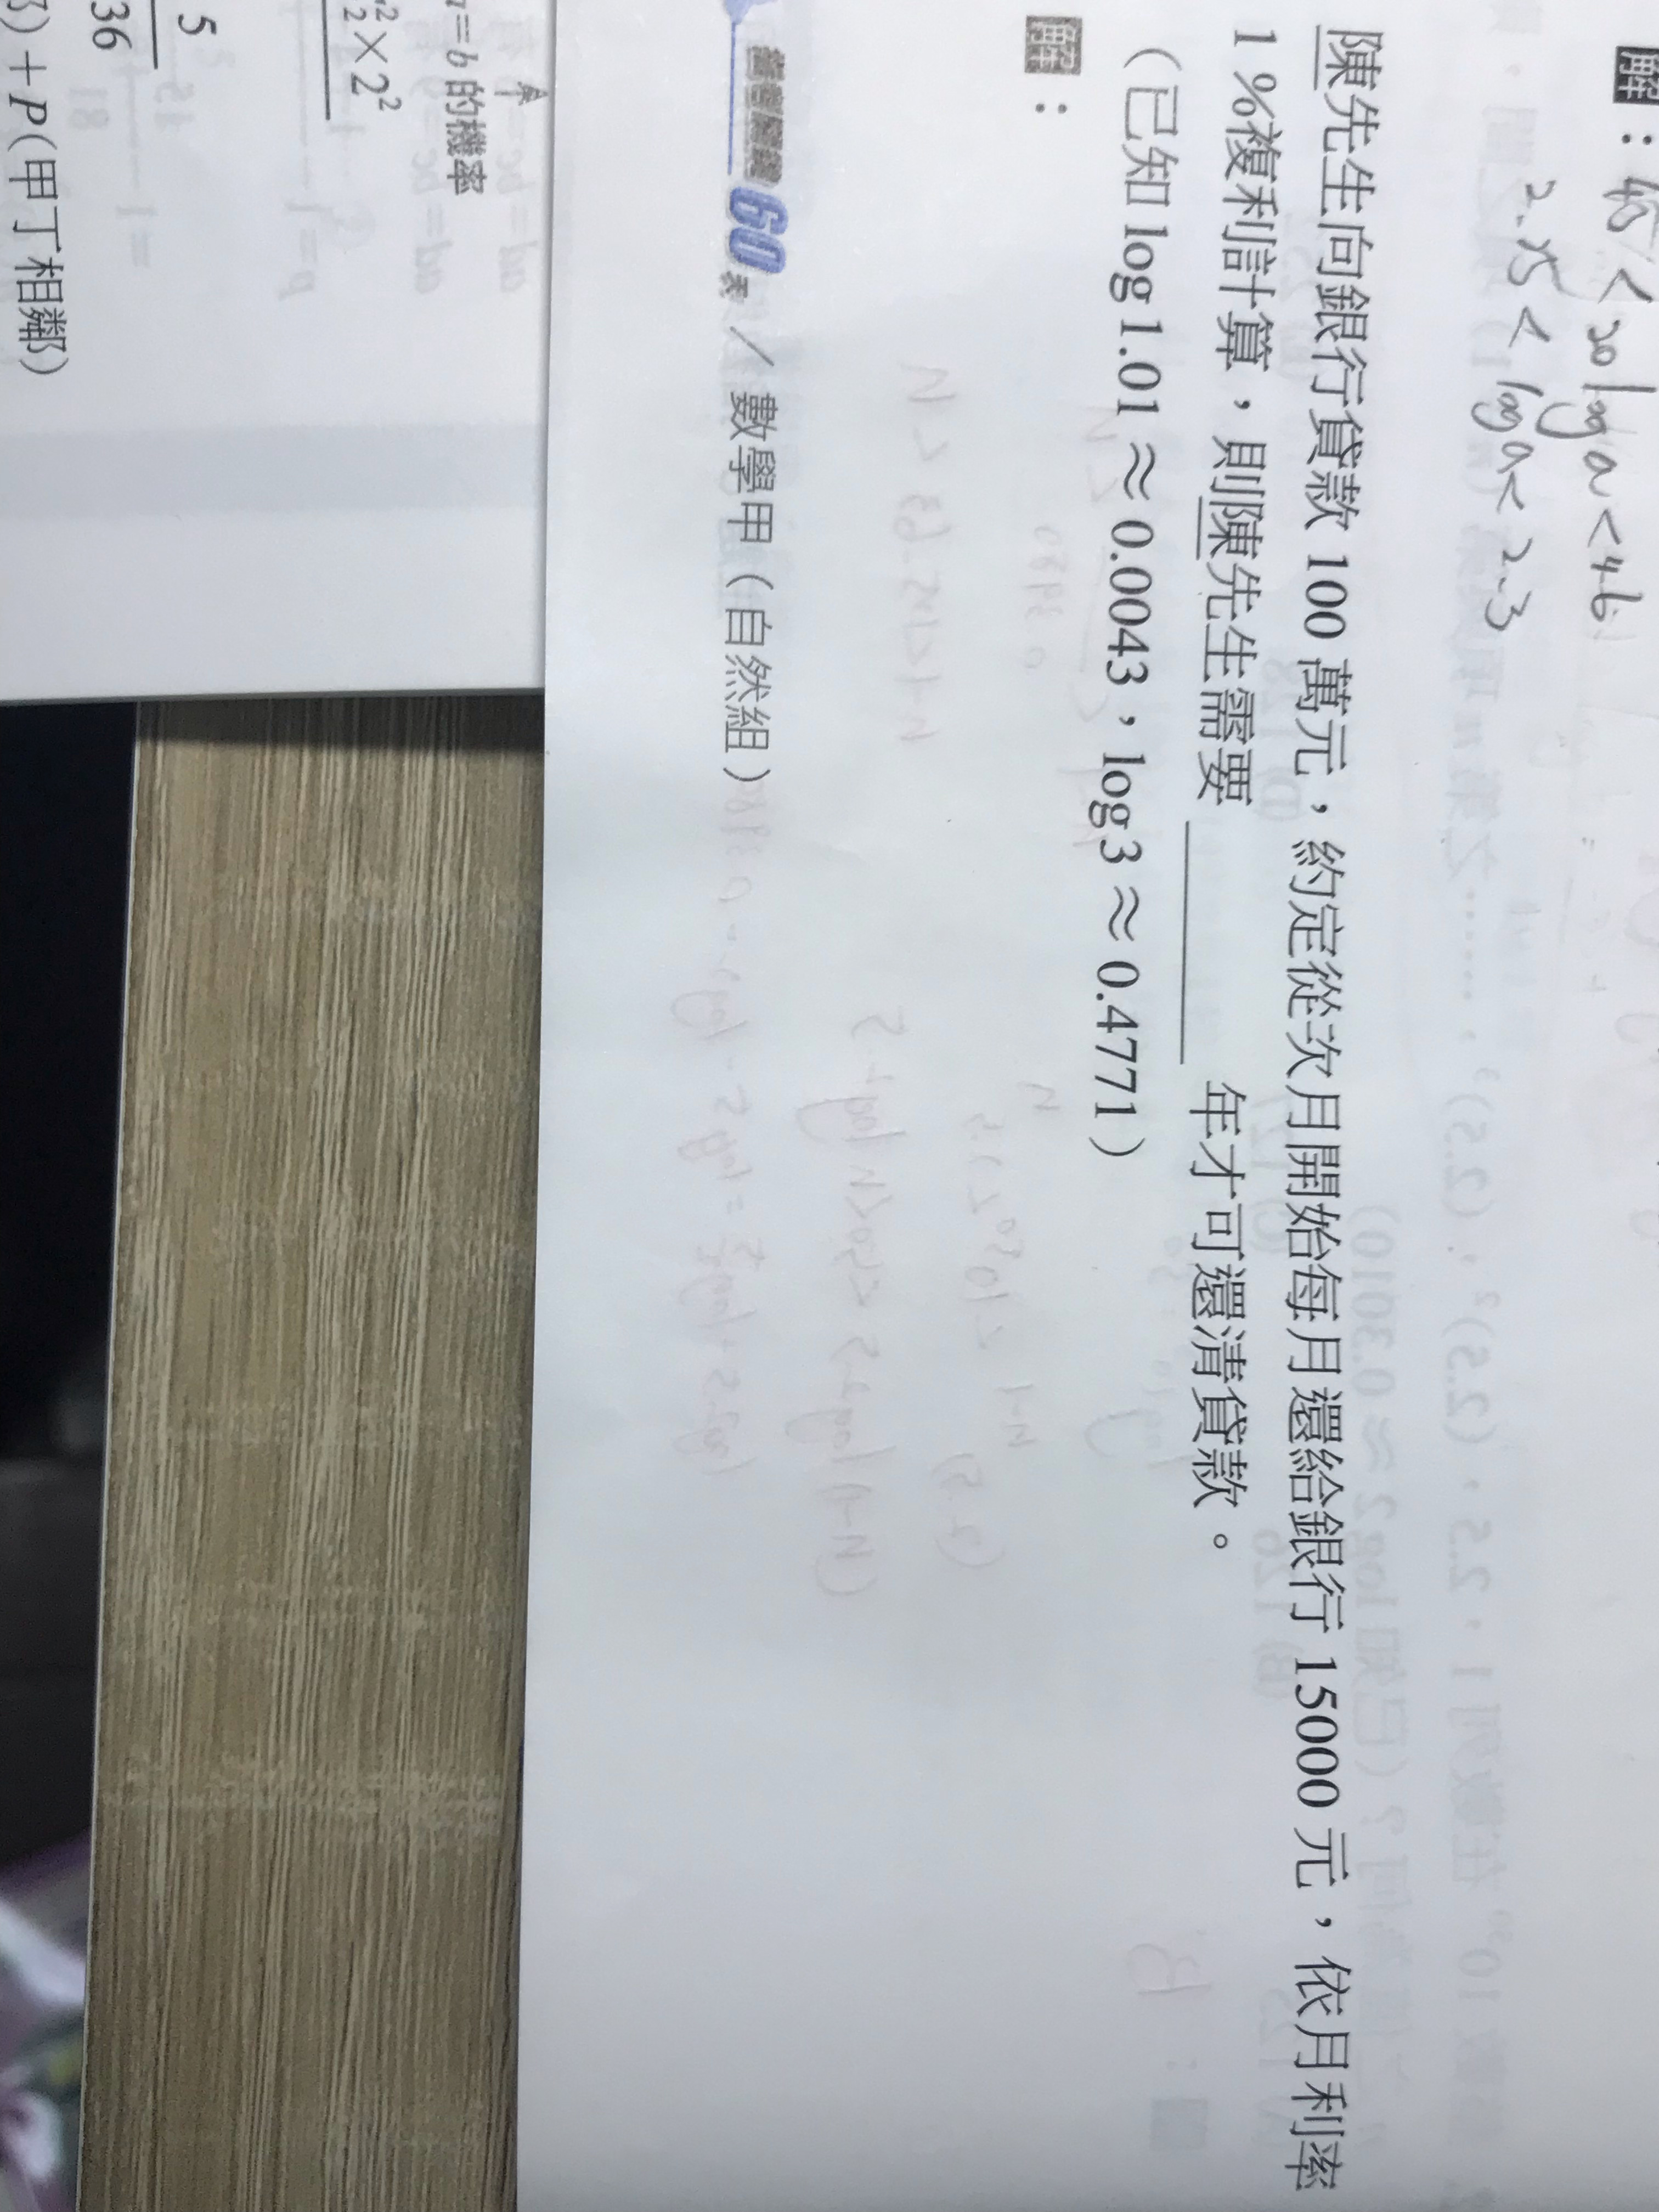 解：45<20log a<46
2.25<log a<2.3
陳先生向銀行貸款 100 萬元，約定從次月開始每月還給銀行 15000 元，依月利率
1 %複利計算，則陳先生需要________年才可還清貸款。
（已知 log 1.01 ≈ 0.0043，log 3 ≈ 0.4771）
解：
60天／數學甲（自然組）
a=b 的機率
2² × 2²
5
36
) + P(甲丁相鄰)